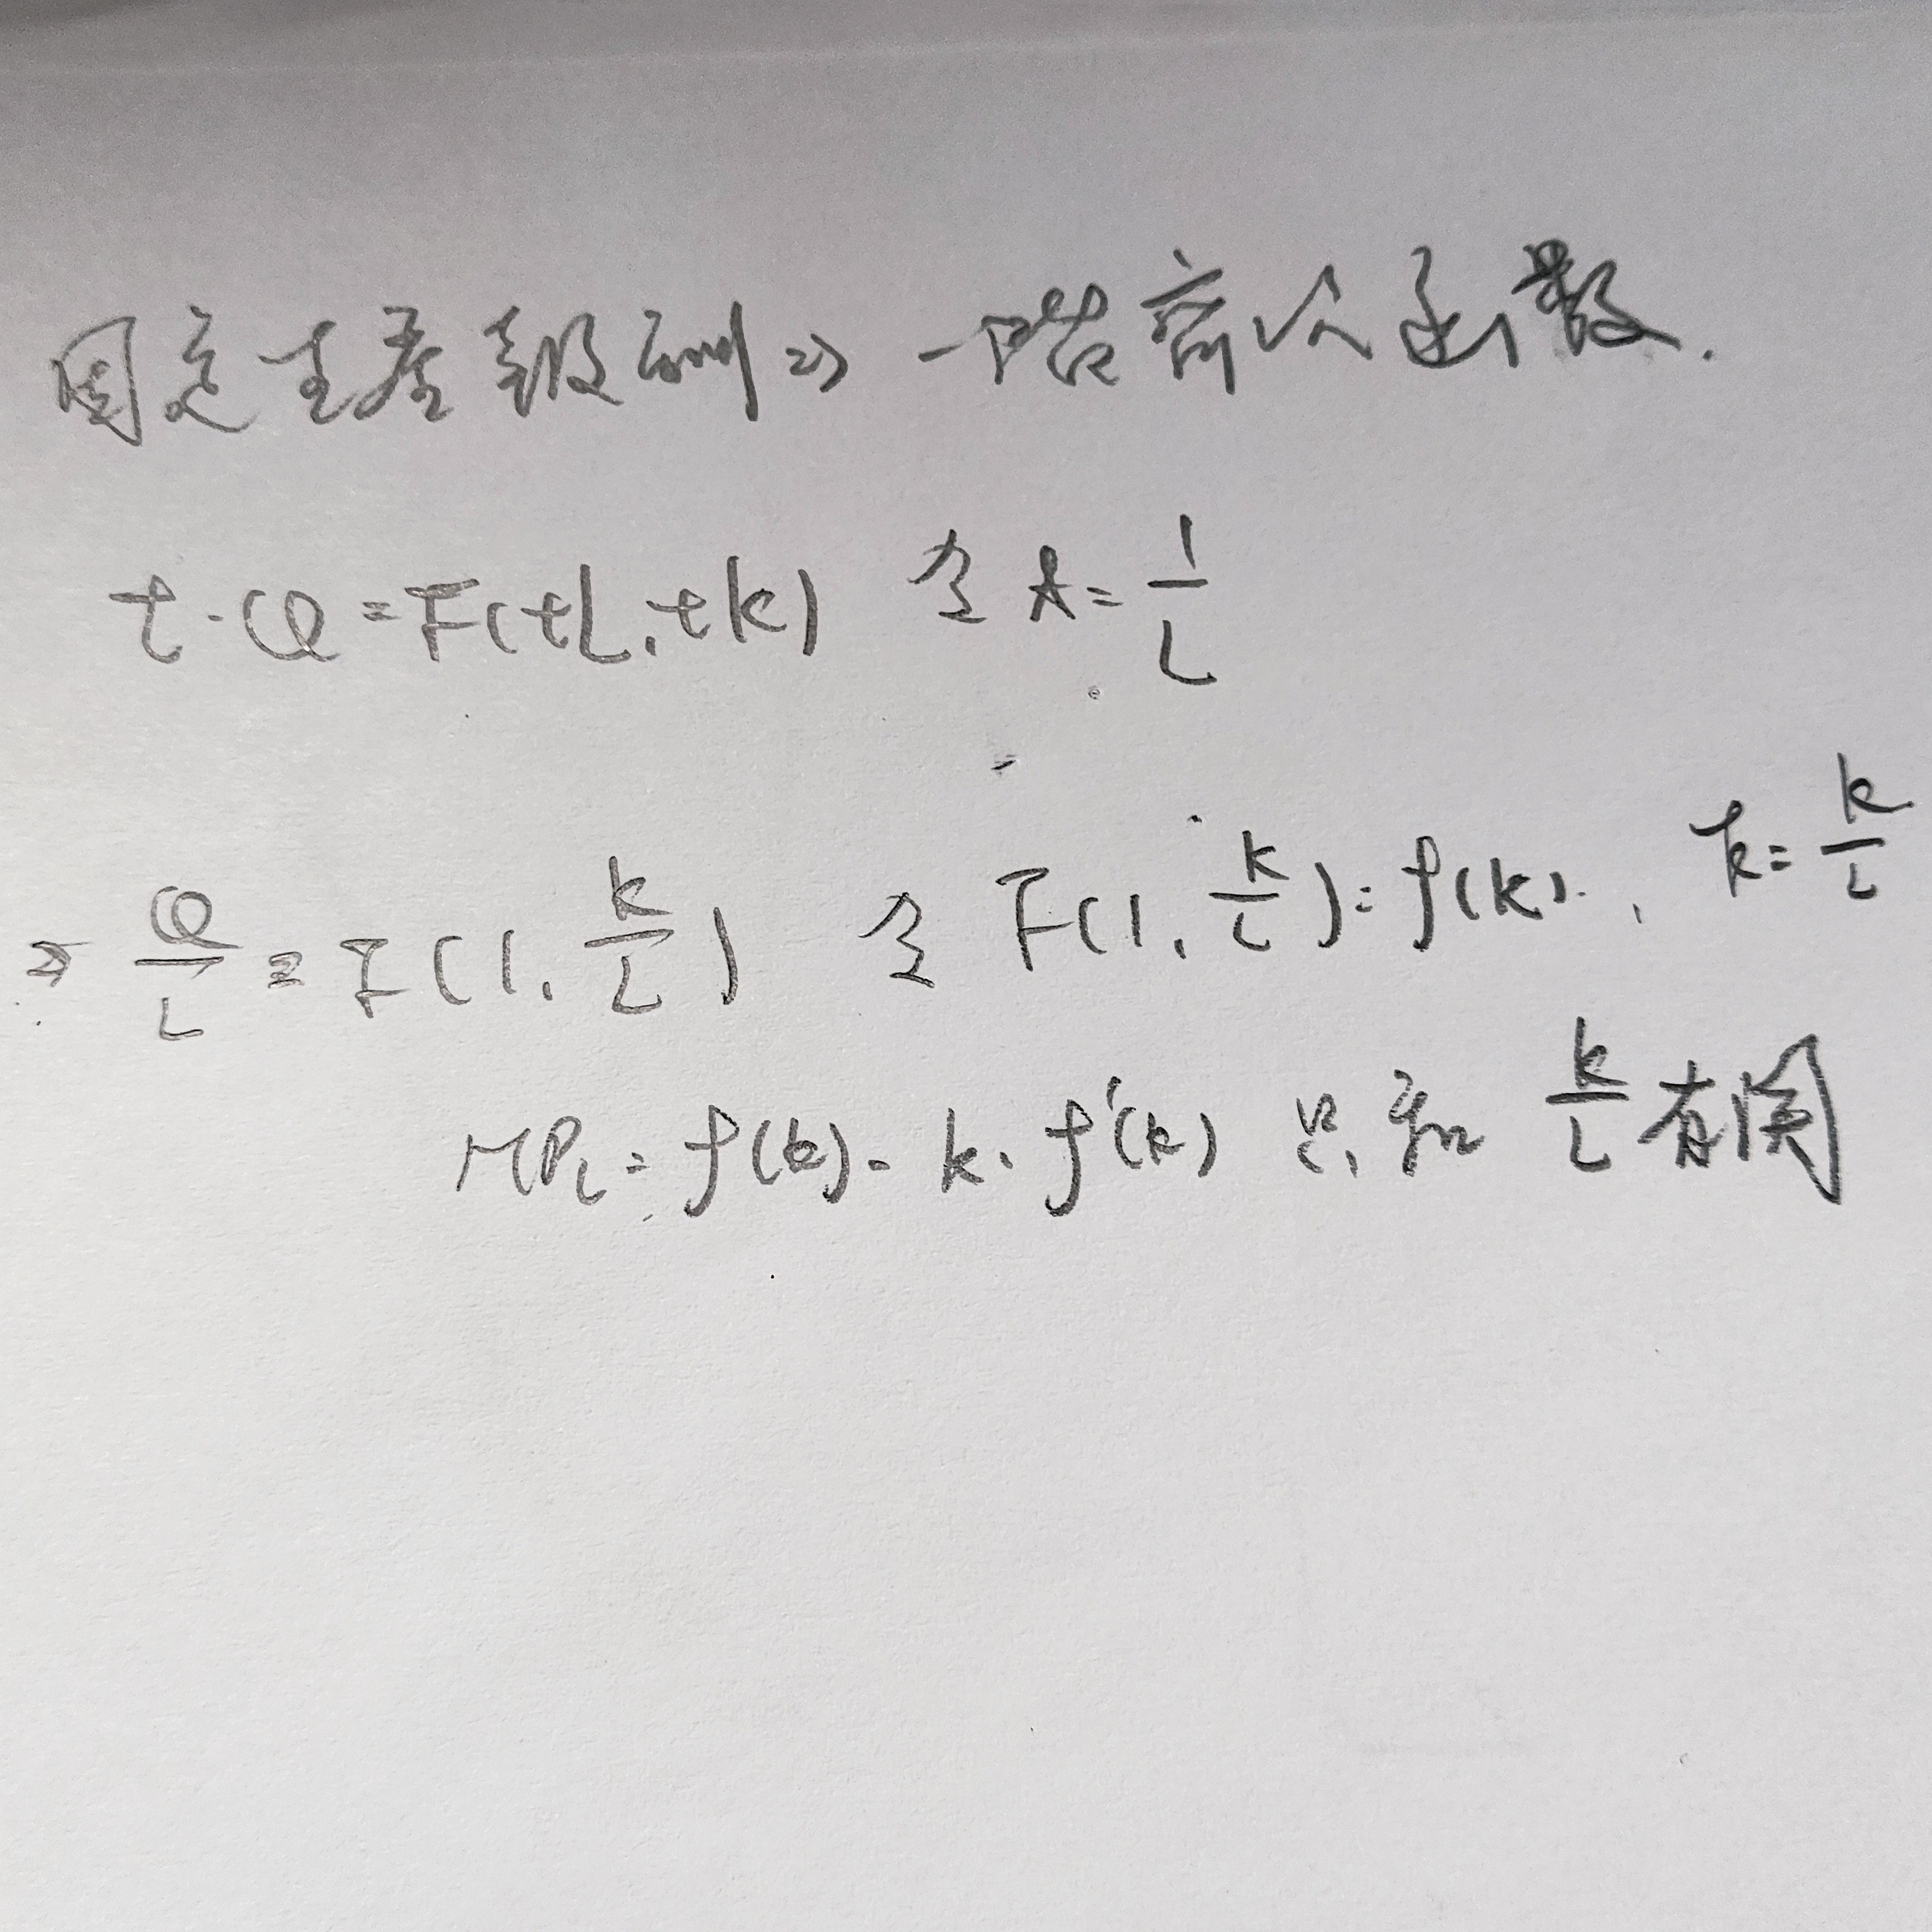 固定生產報酬⇒一階齊次函數.
t·Q=F(tL,tK) 令 t=1/L
⇒ Q/L=F(1,K/L) 令 F(1,K/L)=f(k), k=K/L
MPL=f(k)-k·f'(k) 只和 K/L 有関